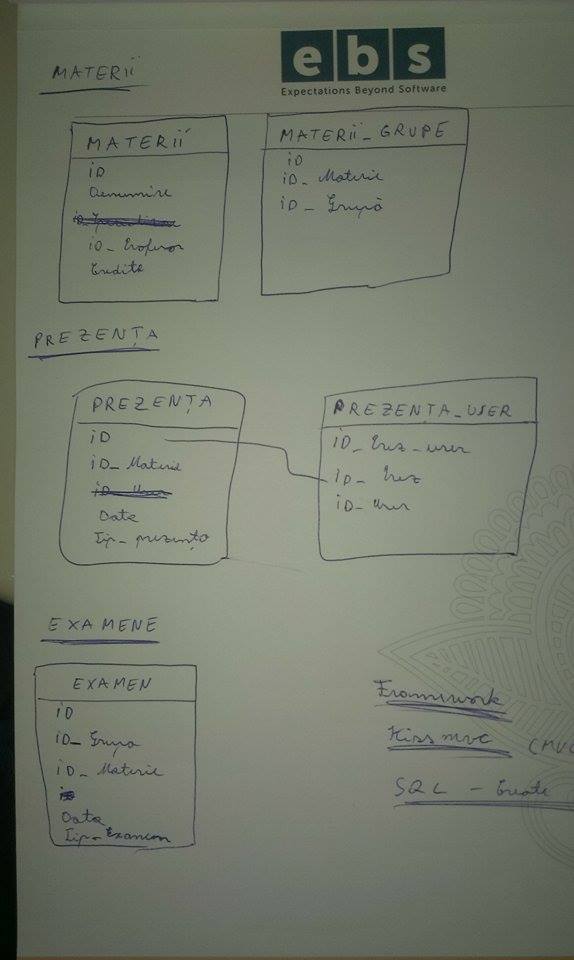 ebs
Expectations Beyond Software
MATERII
MATERII
ID
Denumire
ID_Profesor
Credite
MATERII_GRUPE
ID
ID_Materie
ID_Grupă
PREZENȚA
PREZENȚA
ID
ID_Materie
ID_User
Data
Tip_prezență
PREZENȚA_USER
ID_Prez_user
ID_Prez
ID_User
EXAMENE
EXAMEN
ID
ID_Grupa
ID_Materie
Data
Tip_Examen
Framework
Kiss mvc (MVC
SQL - Create